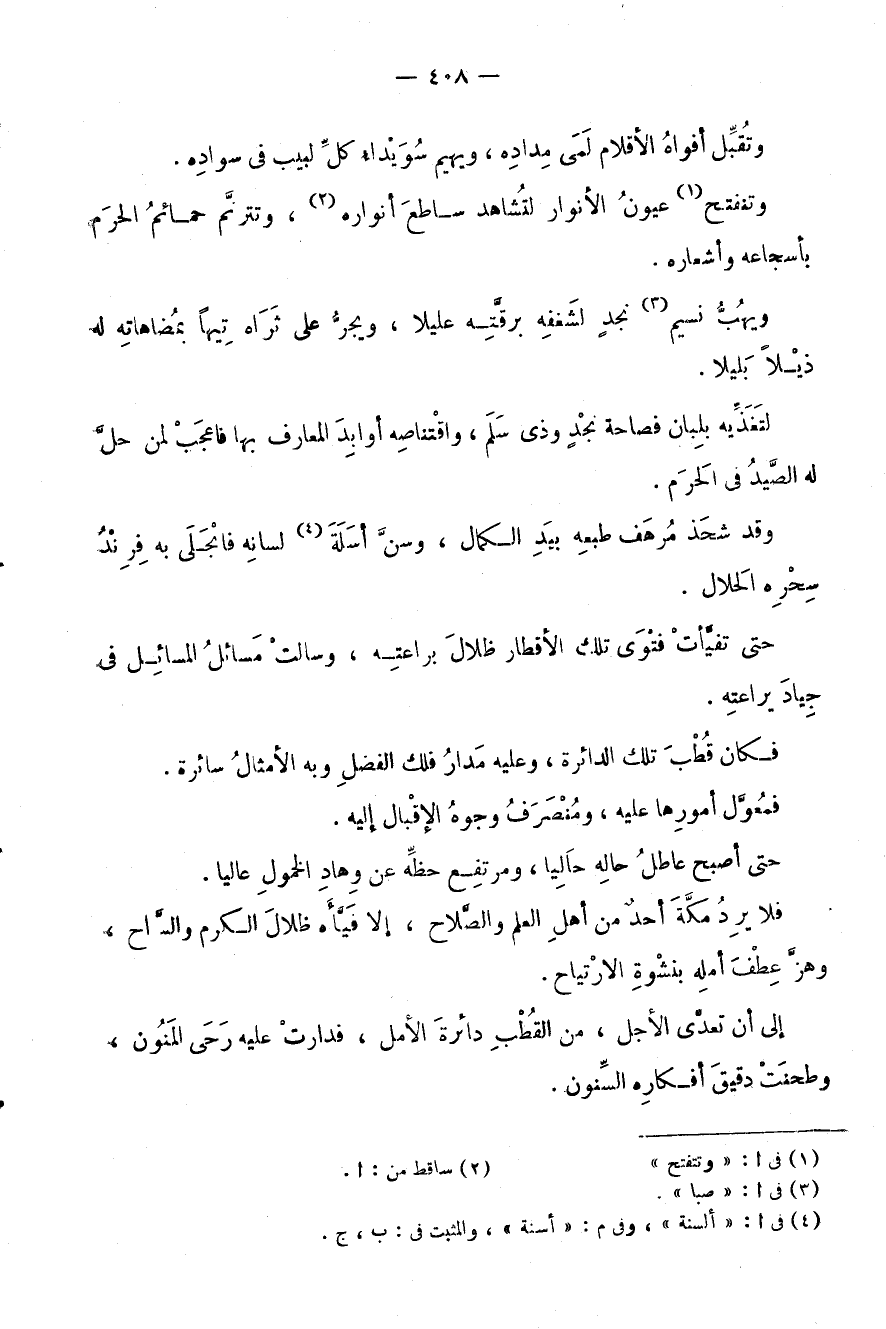 — ٤٠٨ —
وتُقبِّل أفواهُ الأقلام لَمَى مِدادِه ، ويهيم سُوَيْداء كلِّ لبيب فى سوادِه .
وتفتح(١) عيونُ الأنوار لتُشاهد ساطعَ أنواره(٢) ، وتترنَّم حمائمُ الحرَم
بأسجاعه وأشعاره .
ويهُبُّ نسيم(٣) نجدٍ لشَغفِه برقَّتِه عليلا ، ويجرُّ على ثَرَاه تِيهاً بمُضاهاتِه له
ذيْلاً بَليلا .
لتَغَذِّيه بلِبان فصاحة نجْدٍ وذى سَلَم ، واقْتناصِه أوابِدَ المعارف بها فاعجَبْ لمن حلَّ
له الصَّيدُ فى الحَرَم .
وقد شحَذ مُرهَف طبعهِ بيَدِ الكمال ، وسنَّ أسَلَةَ(٤) لسانِه فانْجَلَى به فِرِنْدُ
سِحْرِه الحَلال .
حتى تفيَّأتْ فتْوَى تلك الأقطار ظلالَ براعتِه ، وسالتْ مَسائلُ المسائِل فى
جِيادَ يراعتِه .
فكان قُطْبَ تلك الدائرة ، وعليه مَدارُ فلك الفضلِ وبه الأمثالُ سائرة .
فمُعوَّل أمورِها عليه ، ومُنْصَرَفُ وجوهُ الإقْبال إليه .
حتى أصبح عاطلُ حالِه حَاليا ، ومرتفِع حظِّه عن وِهادِ الخمولِ عاليا .
فلا يرِدُ مكَّةَ أحدٌ من أهلِ العلم والصَّلاح ، إلا فَيَّأه ظلالَ الكرم والسَّماح ،
وهزَّ عِطْفَ أملِه بنشْوةِ الارْتياح .
إلى أن تعدَّى الأجل ، من القُطْبِ دائرةَ الأمل ، فدارتْ عليه رَحَى المَنُون ،
وطحنَتْ دقيقَ أفكارِه السِّنون .
(١) فى ا : « وتتفتح » (٢) ساقط من : ا .
(٣) فى ا : « صبا » .
(٤) فى ا : « ألسنة » ، وفى م : « أسنة » ، والمثبت فى : ب ، ج .